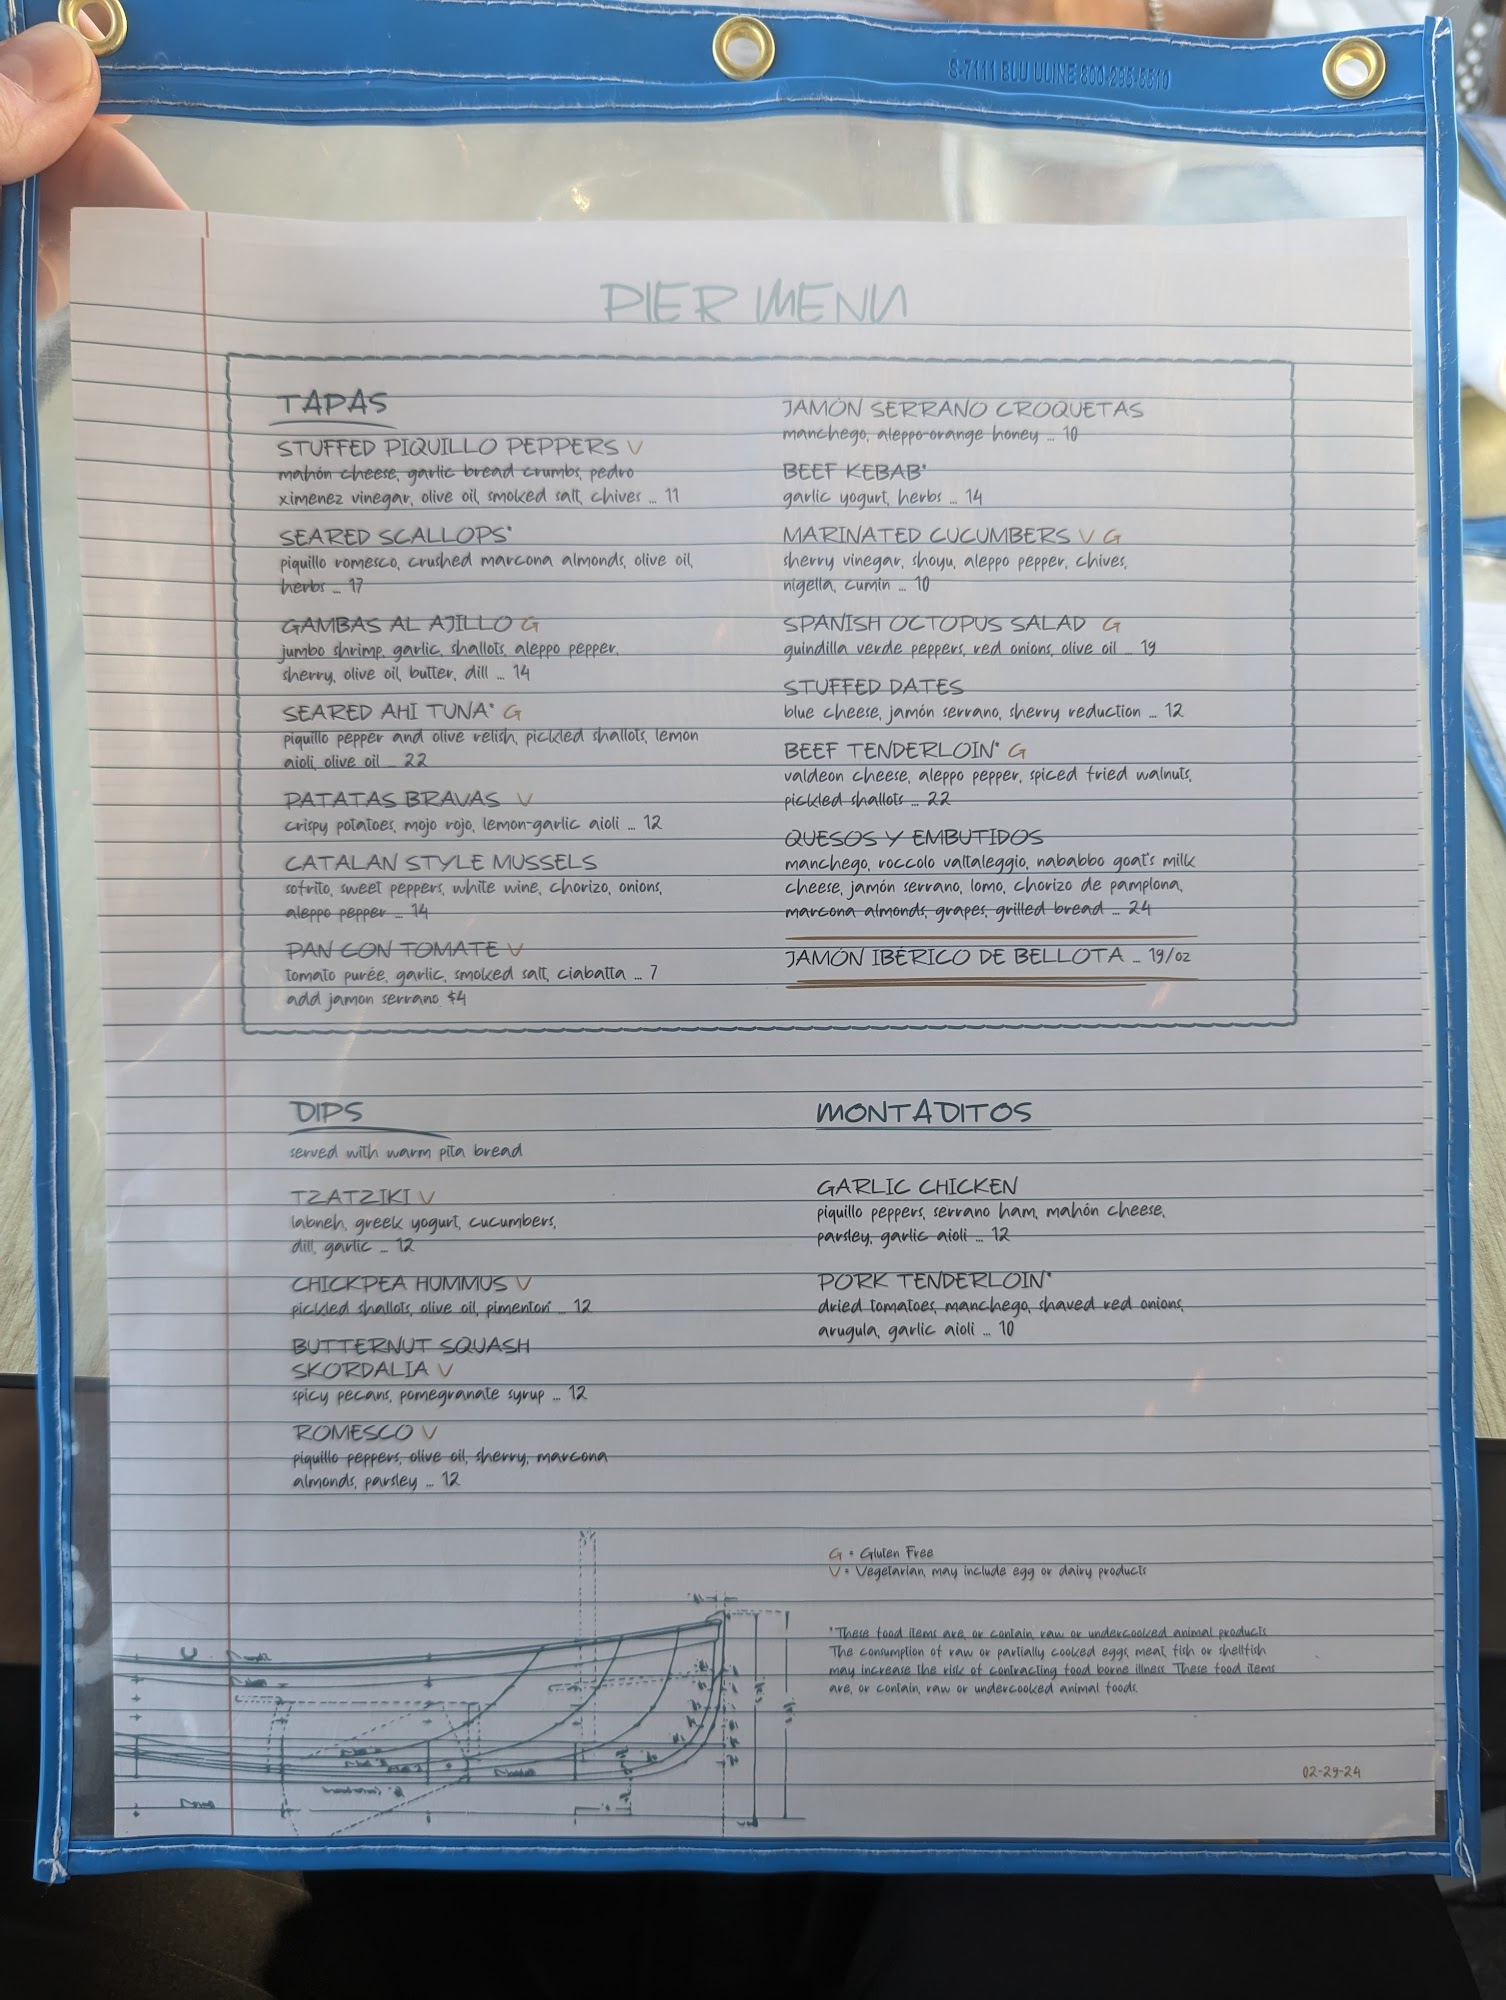 S-7111 BLU ULINE 800-295-5510
PIER MENU
TAPAS
STUFFED PIQUILLO PEPPERS V
mahón cheese, garlic bread crumbs, pedro
ximenez vinegar, olive oil, smoked salt, chives ... 11
SEARED SCALLOPS*
piquillo romesco, crushed marcona almonds, olive oil,
herbs ... 17
GAMBAS AL AJILLO G
jumbo shrimp, garlic, shallots, aleppo pepper,
sherry, olive oil, butter, dill ... 14
SEARED AHI TUNA* G
piquillo pepper and olive relish, pickled shallots, lemon
aioli, olive oil ... 22
PATATAS BRAVAS V
crispy potatoes, mojo rojo, lemon-garlic aioli ... 12
CATALAN STYLE MUSSELS
sofrito, sweet peppers, white wine, chorizo, onions,
aleppo pepper ... 14
PAN CON TOMATE V
tomato purée, garlic, smoked salt, ciabatta ... 7
add jamon serrano $4
JAMÓN SERRANO CROQUETAS
manchego, aleppo-orange honey ... 10
BEEF KEBAB*
garlic yogurt, herbs ... 14
MARINATED CUCUMBERS V G
sherry vinegar, shoyu, aleppo pepper, chives,
nigella, cumin ... 10
SPANISH OCTOPUS SALAD G
guindilla verde peppers, red onions, olive oil ... 19
STUFFED DATES
blue cheese, jamón serrano, sherry reduction ... 12
BEEF TENDERLOIN* G
valdeon cheese, aleppo pepper, spiced fried walnuts,
pickled shallots ... 22
QUESOS Y EMBUTIDOS
manchego, roccolo valtaleggio, nababbo goat's milk
cheese, jamón serrano, lomo, chorizo de pamplona,
marcona almonds, grapes, grilled bread ... 24
JAMÓN IBÉRICO DE BELLOTA ... 19/oz
DIPS
served with warm pita bread
TZATZIKI V
labneh, greek yogurt, cucumbers,
dill, garlic ... 12
CHICKPEA HUMMUS V
pickled shallots, olive oil, pimentón ... 12
BUTTERNUT SQUASH
SKORDALIA V
spicy pecans, pomegranate syrup ... 12
ROMESCO V
piquillo peppers, olive oil, sherry, marcona
almonds, parsley ... 12
MONTADITOS
GARLIC CHICKEN
piquillo peppers, serrano ham, mahón cheese,
parsley, garlic aioli ... 12
PORK TENDERLOIN*
dried tomatoes, manchego, shaved red onions,
arugula, garlic aioli ... 10
G = Gluten Free
V = Vegetarian, may include egg or dairy products
*These food items are, or contain, raw or undercooked animal products.
The consumption of raw or partially cooked eggs, meat, fish or shellfish
may increase the risk of contracting food borne illness. These food items
are, or contain, raw or undercooked animal foods.
02-29-24